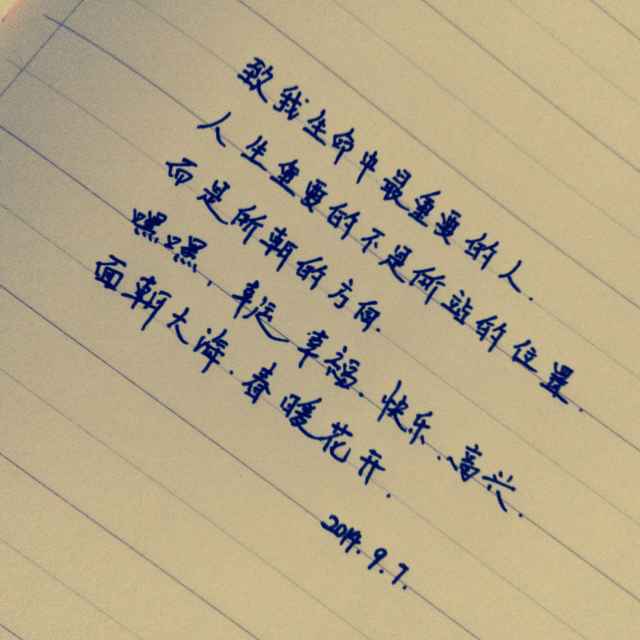 致我生命中最重要的人.
人生重要的不是所站的位置.
而是所朝的方向.
嘿嘿.幸运 幸福.快乐.高兴.
面朝大海.春暖花开.
2014.9.7.